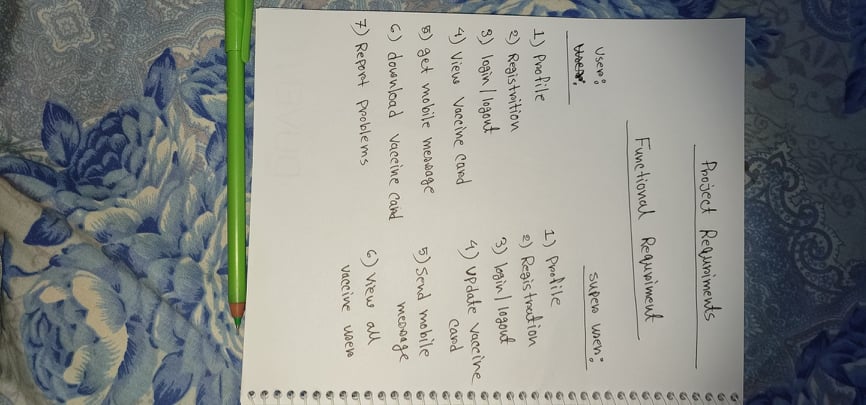 Project Requriments
Functional Requriment
User:
1) Profile
2) Registrition
3) login / logout
4) View Vaccine card
5) get mobile message
6) download vaccine card
7) Report Problems
super user:
1) Profile
2) Registration
3) login / logout
4) update vaccine
card
5) Send mobile
message
6) view all
vaccine user